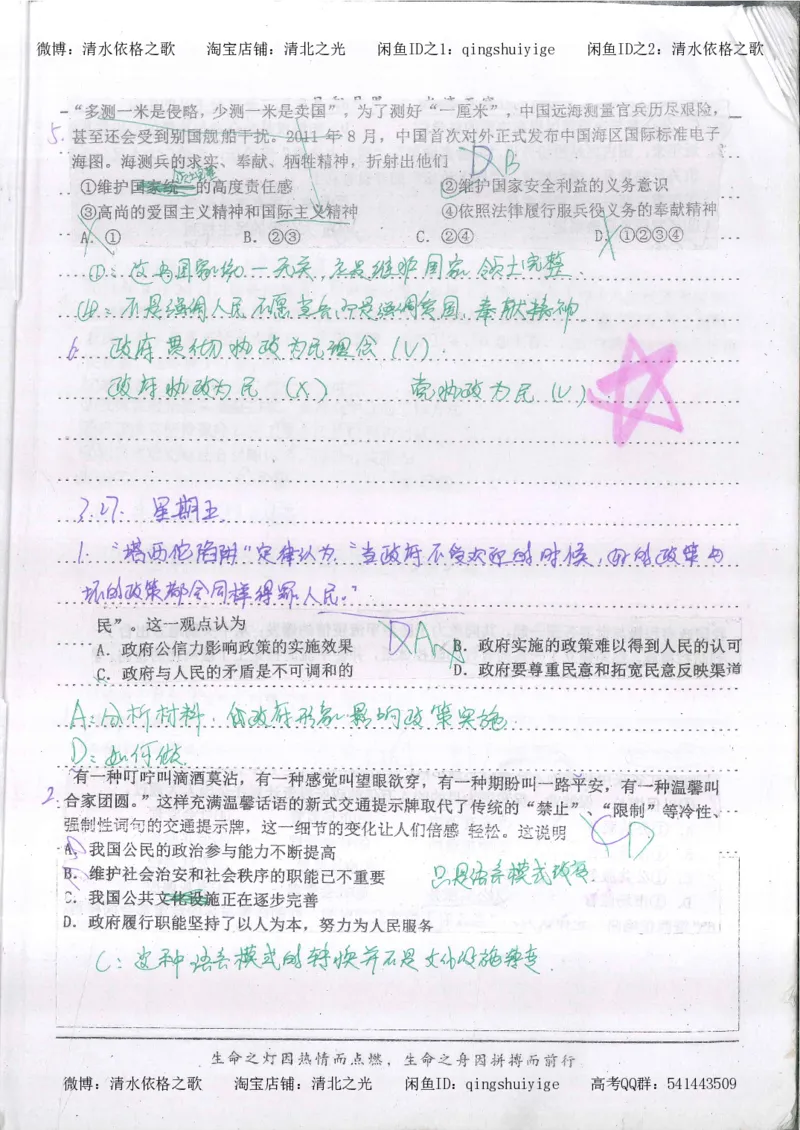 微博：清水依格之歌 淘宝店铺：清北之光 闲鱼ID之1：qingshuiyige 闲鱼ID之2：清水依格之歌
“多测一米是侵略，少测一米是卖国”，为了测好“一厘米”，中国远海测量官兵历尽艰险，
5. 甚至还会受到别国舰船干扰。2011年8月，中国首次对外正式发布中国海区国际标准电子
海图。海测兵的求实、奉献、牺牲精神，折射出他们 D B
①维护国家统一的高度责任感 ②维护国家安全利益的义务意识
③高尚的爱国主义精神和国际主义精神 ④依照法律履行服兵役义务的奉献精神
A. ① B. ②③ C. ②④ D. ①②③④
①：这与国家统一无关，应是维护国家领土完整.
④：不是强调人民不愿当兵，而是强调爱国，奉献精神.
6. 政府贯彻执政为民理念（√）
政府执政为民（×） 党执政为民（√）
3.27. 星期五
1. “塔西佗陷阱”定律认为“当政府不受欢迎的时候，好的政策与
坏的政策都会同样得罪人民.”
民”。这一观点认为 D A
A. 政府公信力影响政策的实施效果 B. 政府实施的政策难以得到人民的认可
C. 政府与人民的矛盾是不可调和的 D. 政府要尊重民意和拓宽民意反映渠道
A：分析材料，/政府形象影响政策实施.
D：如何做.
有一种叮咛叫滴酒莫沾，有一种感觉叫望眼欲穿，有一种期盼叫一路平安，有一种温馨叫
2. 合家团圆。”这样充满温馨话语的新式交通提示牌取代了传统的“禁止”、“限制”等冷性、
强制性词句的交通提示牌，这一细节的变化让人们倍感 轻松。这说明 C D
A. 我国公民的政治参与能力不断提高
B. 维护社会治安和社会秩序的职能已不重要 只是语言模式转变.
C. 我国公共文化设施正在逐步完善
D. 政府履行职能坚持了以人为本，努力为人民服务
C：这种语言模式的转换并不是文化设施转变.
生命之灯因热情而点燃，生命之舟因拼搏而前行
微博：清水依格之歌 淘宝店铺：清北之光 闲鱼ID：qingshuiyige 高考QQ群：541443509